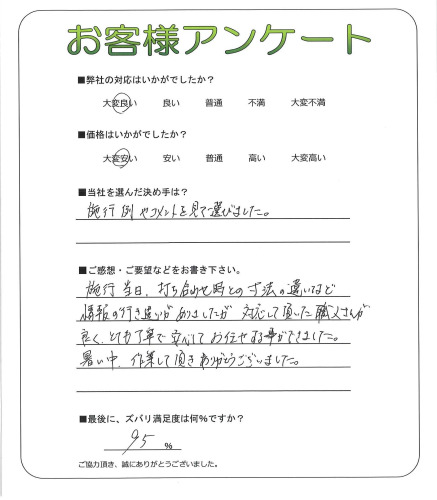 お客様アンケート
■弊社の対応はいかがでしたか?
大変良い 良い 普通 不満 大変不満
■価格はいかがでしたか?
大変安い 安い 普通 高い 大変高い
■当社を選んだ決め手は?
施行例やコメントを見て選びました。
■ご感想・ご要望などをお書き下さい。
施行当日、打ち合わせ時との寸法の違いなど
情報の行き違いがありましたが対応して頂いた職人さんが
良く、とても丁寧で安心してお任せする事ができました。
暑い中、作業して頂きありがとうございました。
■最後に、ズバリ満足度は何%ですか?
95 %
ご協力頂き、誠にありがとうございました。